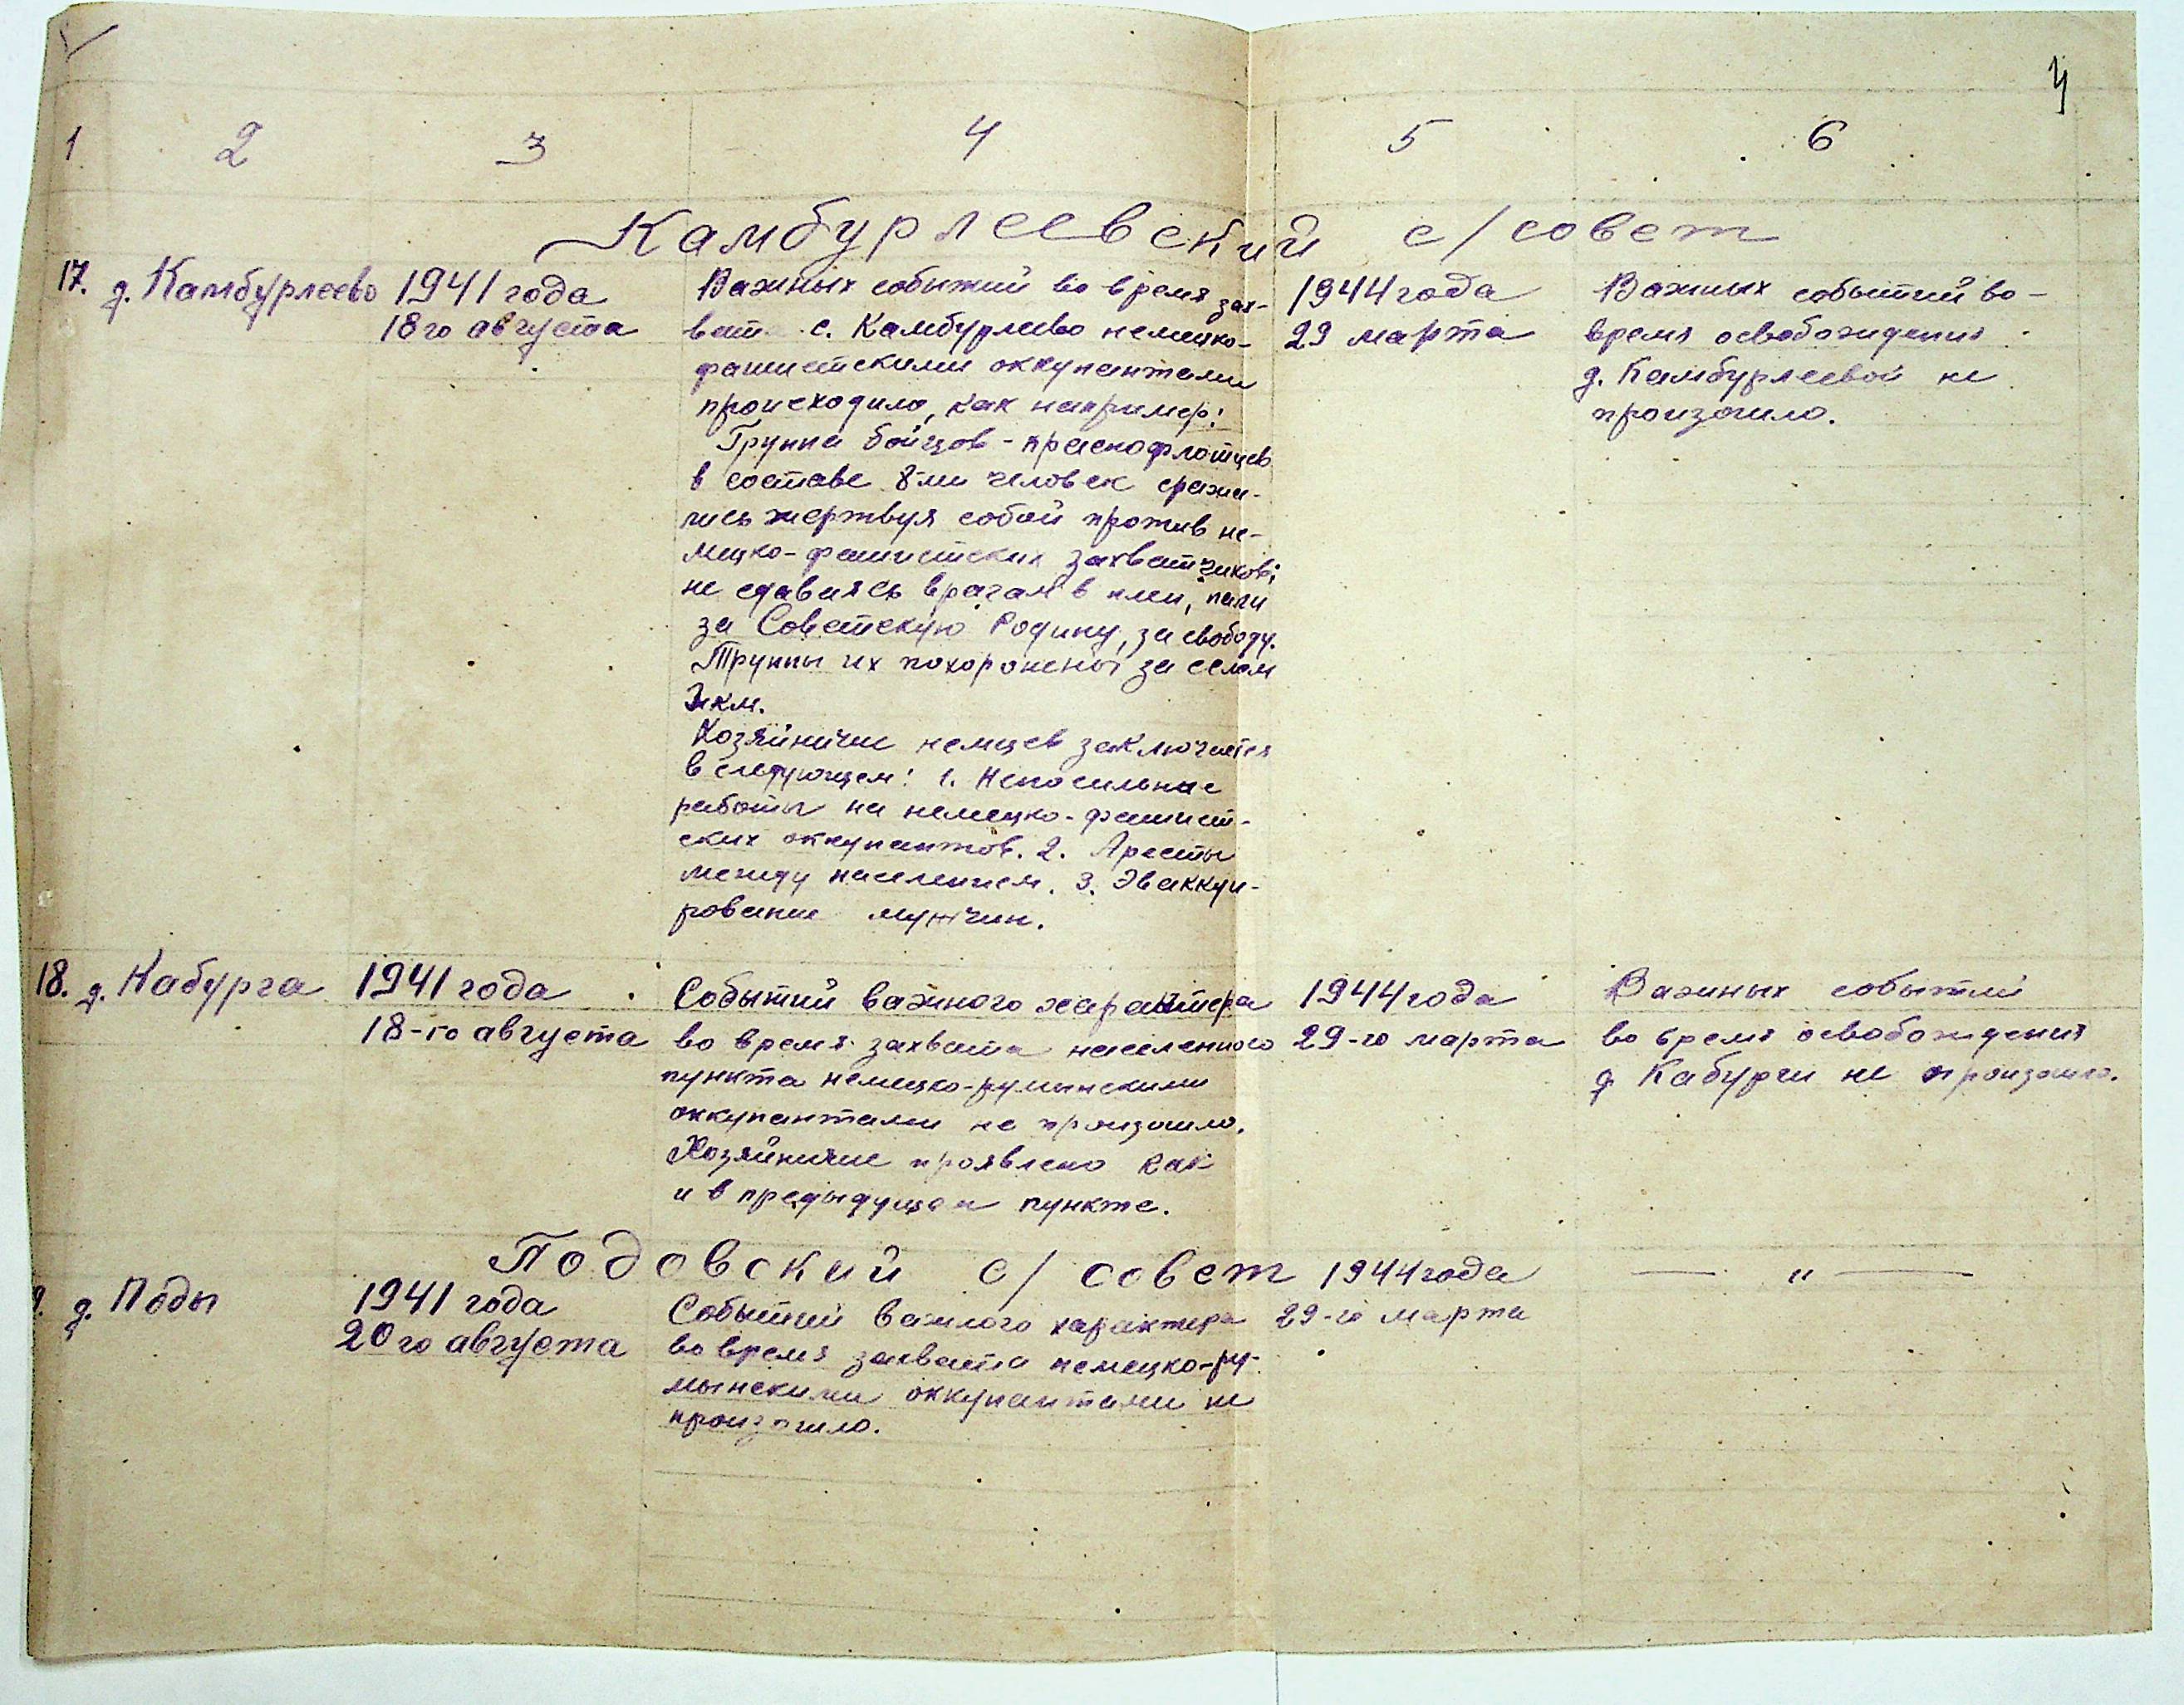 4
1 2 3 4 5 6
Камбурлеевский с/совет
17. д. Камбурлеево
1941 года
18го августа
Важных событий во время зах-
ват с. Камбурлеево немецко-
фашистскими оккупантами
происходило, как например:
Группа бойцов-краснофлотцев
в составе 8-ми человек сража-
лись жертвуя собой против не-
мецко-фашистских захватчиков;
не сдаваясь врагам в плен, пали
за Советскую Родину, за свободу.
Труппы их похоронены за селом
км.
Хозяйничие немцев заключается
в следующем: 1. Непосильные
работы на немецко-фашист-
ских оккупантов. 2. Аресты
между населением. 3. Эваккуи-
рование мужчин.
1944 года
29 марта
Важных событий во-
время освобождения
д. Камбурлеевой не
произошло.
18. д. Кабурга
1941 года
18-го августа
Событий важного характера
во время захвата населенного
пункта немецко-румынскими
оккупантами не произошло.
Хозяйничие проявлено как
и в предыдущем пункте.
1944 года
29-го марта
Важных событий
во время освобождения
д Кабурги не произошло.
Подовский с/совет
9. д. Поды
1941 года
20го августа
Событий важного характера
во время захвата немецко-ру-
мынскими оккупантами не
произошло.
1944 года
29-го марта
— " —